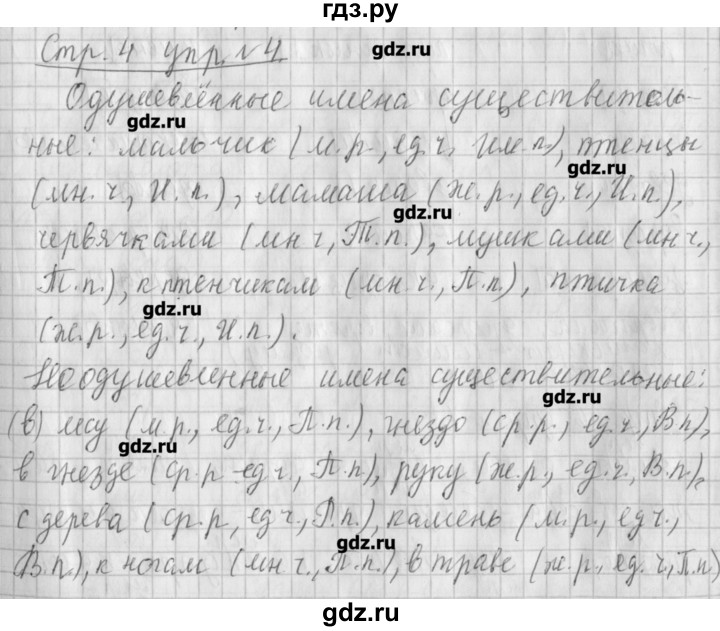 гдз.ру
Стр. 4 упр. №4
gdz.ru
Одушевлённые имена существитель-
gdz.ru
ные: мальчик (м.р., ед.ч., Им.п.), птенцы
gdz.ru
(мн.ч., И.п.), мамаша (ж.р., ед.ч., И.п.),
gdz.ru
червячками (мн.ч., Т.п.), мушками (мн.ч.,
Т.п.), к птенчикам (мн.ч., П.п.), птичка
gdz.ru
(ж.р., ед.ч., И.п.).
Неодушевленные имена существительные:
gdz.ru
(в) лесу (м.р., ед.ч., П.п.), гнездо (ср.р., ед.ч., В.п.),
gdz.ru
в гнезде (ср.р ед.ч., П.п.), руку (ж.р., ед.ч., В.п.),
с дерева (ср.р, ед.ч., Р.п.), камень (м.р., ед.ч.,
gdz.ru
В.п.), к ногам (мн.ч., Д.п.), в траве (ж.р., ед.ч., П.п)
gdz.ru